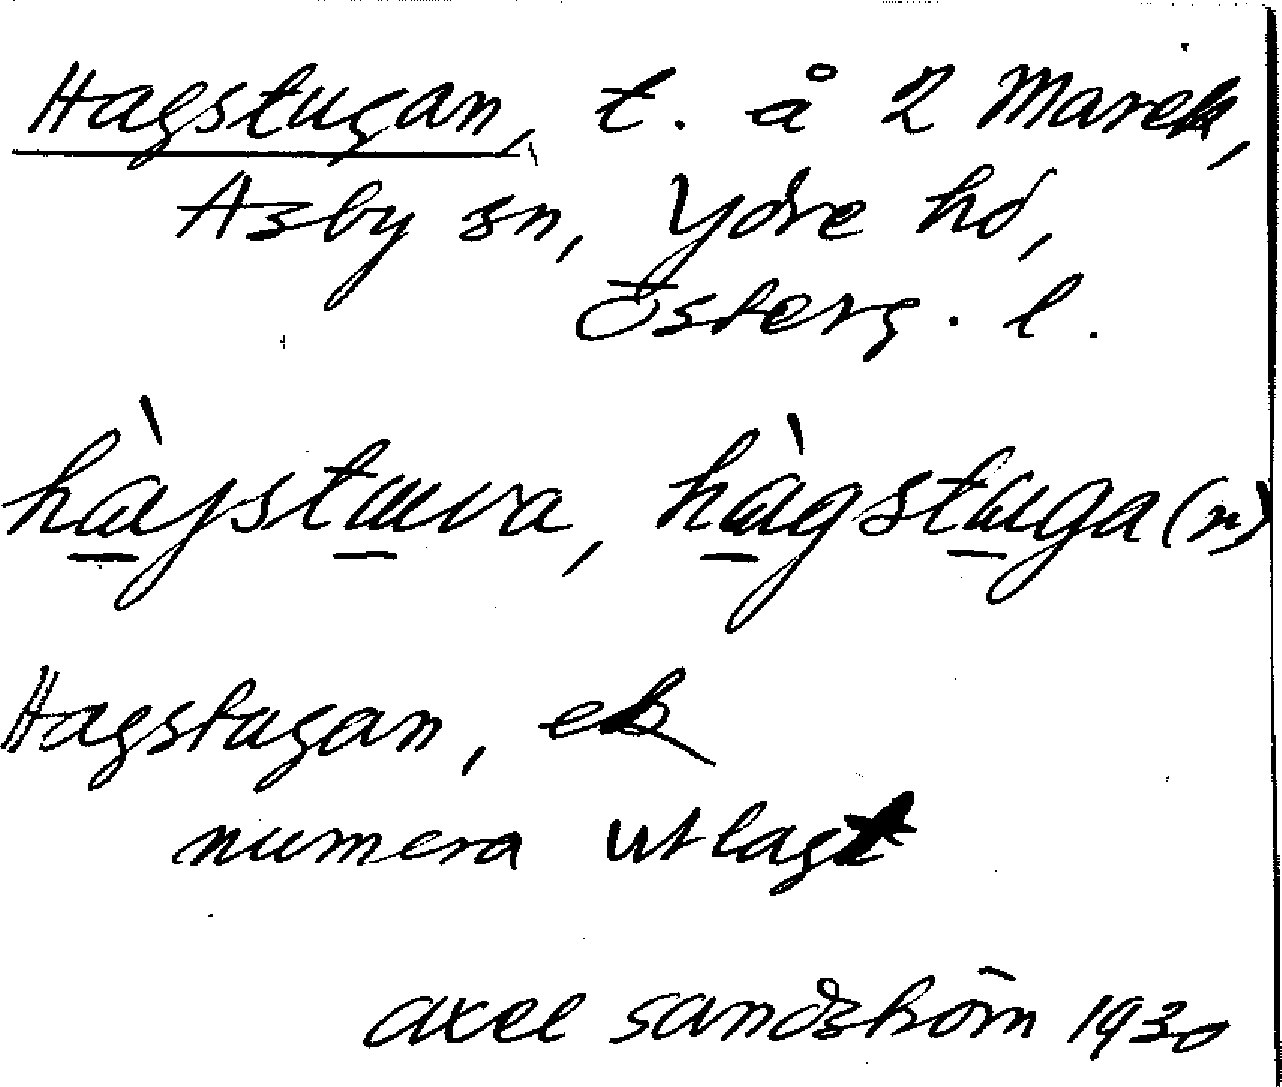 Hagstugan, t. å 2 Marek,
Asby sn, Ydre hd,
Österg. l.
hàgstuva, hàgstuga(n)
Hagstugan, ek
numera utlagt
axel sandström 1930